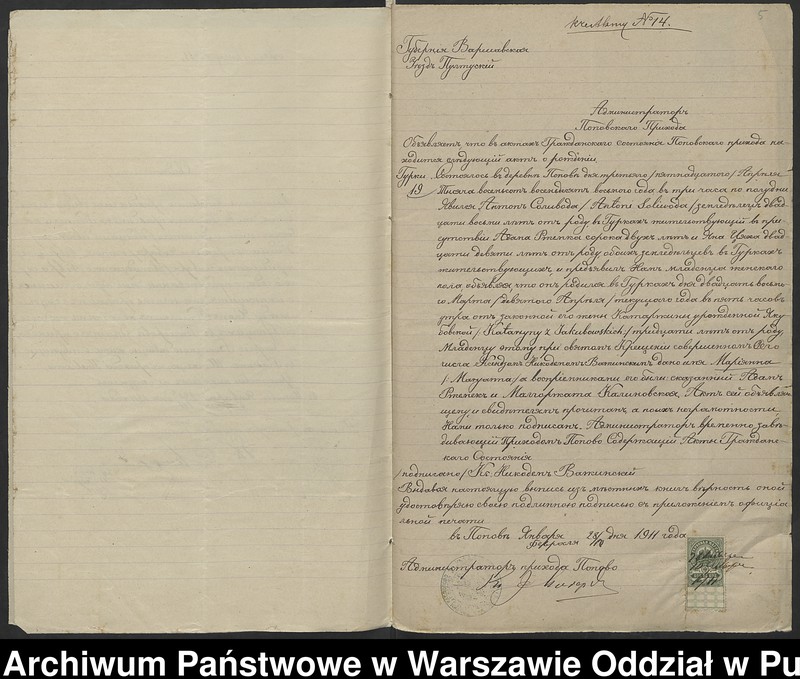 к №14.
5
Губернія Варшавская
Уѣздъ Пултускій
Администраторъ
Поповскаго Прихода
Объявляетъ что въ актахъ Гражданскаго состоянія Поповскаго прихода на-
ходится слѣдующій актъ о рожденіи
Гурки. Состоялось въ деревнѣ Поповѣ дня третьяго /пятнадцатаго/ Апрѣля
19 Тысяча восемьсотъ восемьдесятъ восьмого года въ три часа по полудни
Явился Антонъ Саливода /Antoni Saliwoda/ земледѣлецъ двад-
цати восьми лѣтъ отъ роду въ Туркахъ жительствующій въ при-
сутствіи Адама сорока двухъ лѣтъ и Яна двад-
цати девяти лѣтъ отъ роду, обоихъ земледѣльцевъ въ Туркахъ
жительствующихъ, и предъявилъ Намъ младенца женскаго
пола, объявляя, что онъ родился въ Туркахъ дня двадцать восьма-
го Марта /девятаго Апрѣля/ текущаго года въ пять часовъ
утра отъ законной его жены Катаржины урожденной Яку-
бовской /Katarzyny z Jakubowskich/ тридцати лѣтъ отъ роду.
Младенцу этому при святомъ Крещеніи совершенномъ сего
числа Ксендзомъ Никодемомъ дано имя Маріанна
/Maryanna/ а воспріемниками его были сказанный Адамъ
и Малгоржата Калиновская. Актъ сей объявляю-
щему и свидѣтелямъ прочитанъ, а по ихъ неграмотности
Нами только подписанъ. Администраторъ временно завѣ-
дывающій Приходомъ Попово Содержащій Акты Гражданс-
каго Состоянія
/подписано/ Кс. Никодемъ
Выдавая настоящую выпись изъ мѣстныхъ книгъ вѣрность оной
удостовѣряю своею подлинною подписью съ приложеніемъ оффиціа-
льной печати
въ Поповѣ Января 28/ дня 1911 года
Февраля 10
Администраторъ прихода Попово
Кс.
Archiwum Państwowe w Warszawie Oddział w Pu